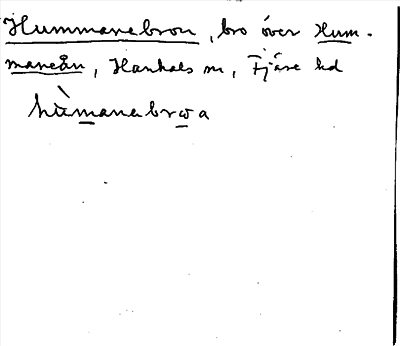 Hummanebron, bro över Hum-
maneån, Hanhals sn, Fjäre hd
hùmanabrωa